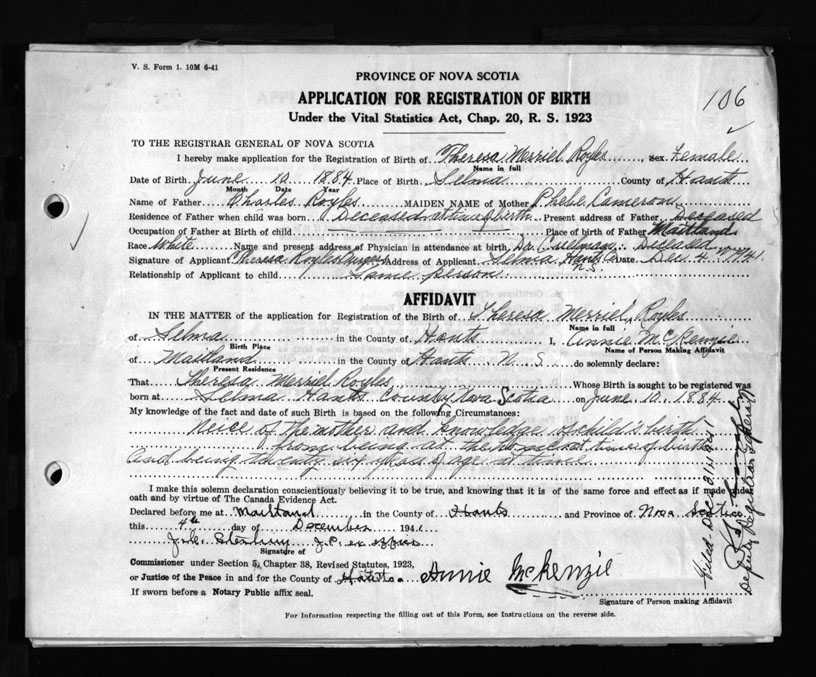 V. S. Form 1. 10M 6-41
PROVINCE OF NOVA SCOTIA
106
APPLICATION FOR REGISTRATION OF BIRTH
Under the Vital Statistics Act, Chap. 20, R. S. 1923
TO THE REGISTRAR GENERAL OF NOVA SCOTIA
I hereby make application for the Registration of Birth of Theresa Merriel Royles, Sex Female
Name in full
Date of Birth June 10 1884 Place of Birth Selma County of Hants
Month Date Year
Name of Father Charles Royles MAIDEN NAME of Mother Phebe Cameron
Residence of Father when child was born Deceased at time of birth Present address of Father Deceased
Occupation of Father at Birth of child Place of birth of Father Maitland
Race White Name and present address of Physician in attendance at birth Dr. Deceased
Signature of Applicant Theresa Royles Address of Applicant Selma Hants Co N.S. Date Dec 4 1941
Relationship of Applicant to child Same person
AFFIDAVIT
IN THE MATTER of the application for Registration of the Birth of Theresa Merriel Royles
Name in full
of Selma in the County of Hants I, Annie McKenzie
Birth Place Name of Person Making Affidavit
of Maitland in the County of Hants N. S. do solemnly declare:
Present Residence
That Theresa Merriel Royles Whose Birth is sought to be registered was
born at Selma Hants County Nova Scotia on June 10 1884
My knowledge of the fact and date of such Birth is based on the following Circumstances:
Neice of the mother and knowledge of child's birth
from being at the home at time of birth
and being twenty six years of age at time
I make this solemn declaration conscientiously believing it to be true, and knowing that it is of the same force and effect as if made
oath and by virtue of The Canada Evidence Act.
Declared before me at Maitland in the County of Hants and Province of Nova Scotia
this 4th day of December 1941
J. P. ex officio
Signature of
Commissioner under Section 5, Chapter 38, Revised Statutes, 1923,
or Justice of the Peace in and for the County of Hants Annie McKenzie
If sworn before a Notary Public affix seal.
Signature of Person making Affidavit
For Information respecting the filling out of this Form, see Instructions on the reverse side.
Filed Dec 1941
Deputy Registrar General